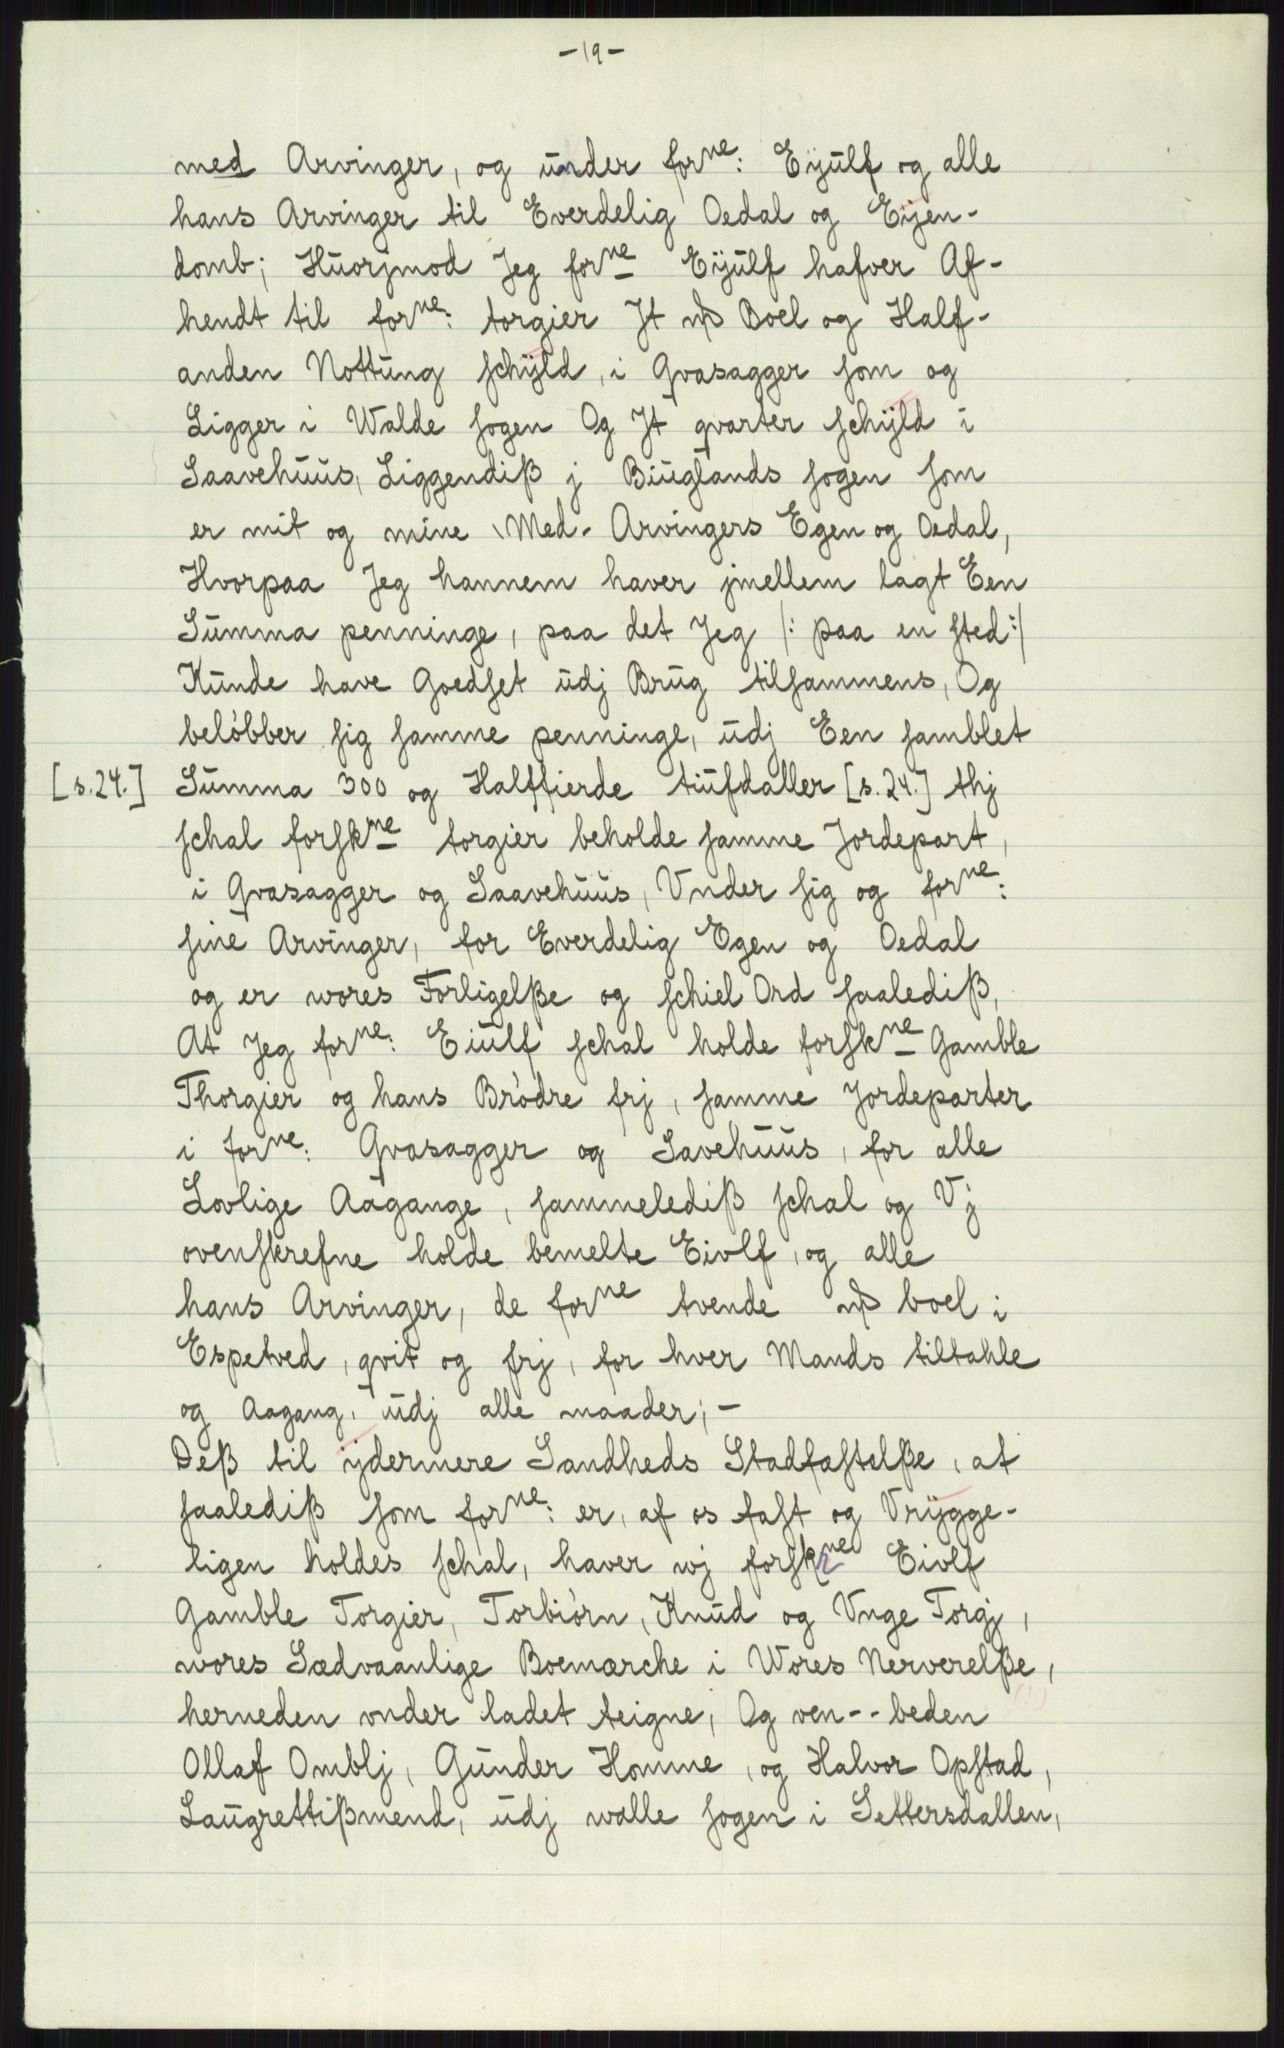 -19-
med Arvinger, og under forne: Eÿulf og alle
hans Arvinger til Everdelig Oedal og Eijen-
domb; Huorjmod Jeg forne Eÿulf hafver Af-
hendt til forne: torgier Jt Boel og Half-
anden Nottung schÿld, i Qvasagger som og
Ligger i Walde sogen Og Jt qvarter schÿld i
Saavehuus, Liggendiß j Biuglands sogen som
er mit og mine Med-Arvingers Egen og Oedal,
Hvorpaa Jeg hannem haver jmellem lagt Een
Summa penninge, paa det Jeg /: paa en sted :/
Kunde have Goedset udj Brug tilsammens, Og
beløbber sig samme penninge, udj Een samblet
[s.24.] Summa 300 og Halffierde tiufdaller [s.24.] thj
schal forskne torgier beholde samme Jordepart,
i Qvasagger og Saavehuus, Vnder sig og forne:
sine Arvinger, for Everdelig Egen og Oedal
og er wores Forligelße og schiel Ord saalediß,
At Jeg forne: Eiulf schal holde forskne Gamble
Thorgier og hans Brødre frj, samme Jordeparter
i forne: Qvasagger og Savehuus, for alle
Lovlige Aagange, sammelediß schal og Vj
ovenskrefne holde bemelte Eivlf, og alle
hans Arvinger, de forne tvende boel i
Espetved, qvit og frj, for hver Mands tiltahle
og Aagang, udj alle maader; -
Deß til ÿdermere Sandheds Stadfæstelße, at
saalediß som forne: er, af os fast og Vrÿgge-
ligen holdes schal, haver wj forskrne Eivlf
Gamble Torgier, Torbiørn, Knud og Vnge Torgj,
wores Sædvaanlige Boemærche i Wores Nerverelße,
herneden vnder ladet teigne, Og ven-- beden (!)
Ollaf Omblj, Gunder Homme, og Halvor Opstad,
Laugrettißmend, udj walle sogen i Settersdallen,